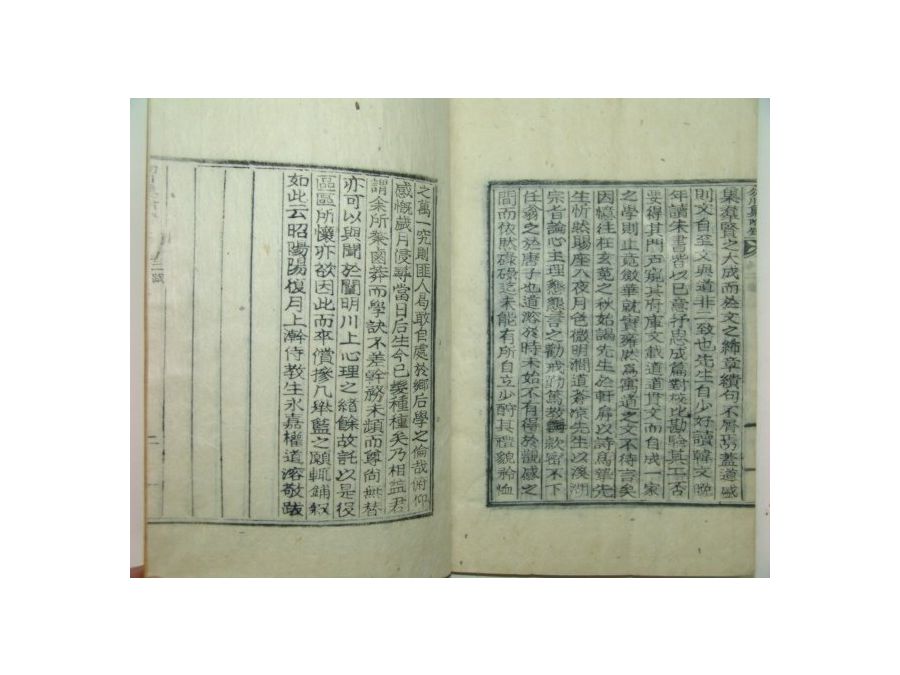 集羣賢之大成而於文之絺章繢句不屑焉蓋道盛
則文自至文與道非二致也先生自少好讀韓文晚
年讀朱書皆以已意抒思成篇對校比勘驗其工否
要得其門戶窺其府庫文載道道貫文而自成一家
之學則止竟斂華就實雍然爲寓道之文不待言矣
因憶往在玄菟之秋始謁先生於軒屛以詩爲贄先
生忻然賜座八夜月色微明澗道蒼凉先生以溪湖
宗旨論心主理懇懇言之勸戒勤篤敎誨款密不下
任翁之於唐子也道溶於時未始不有得於觀感之
間而依然碌碌迄未能有所自立少酬其禮貌衿恤
之萬一究則匪人曷敢自處於鄕后學之倫哉俯仰
感慨歲月侵尋當日后生今已髮種種矣乃相益君
謂余所業鹵莽而學訣不差幹務未頒而尊尚無替
亦可以與聞於闡明川上心理之緖餘故託以是役
區區所懷亦欲因此而卒償摻几舉藍之願輒鋪叙
如此云昭陽陽復月上澣侍敎生永嘉權道溶敬跋